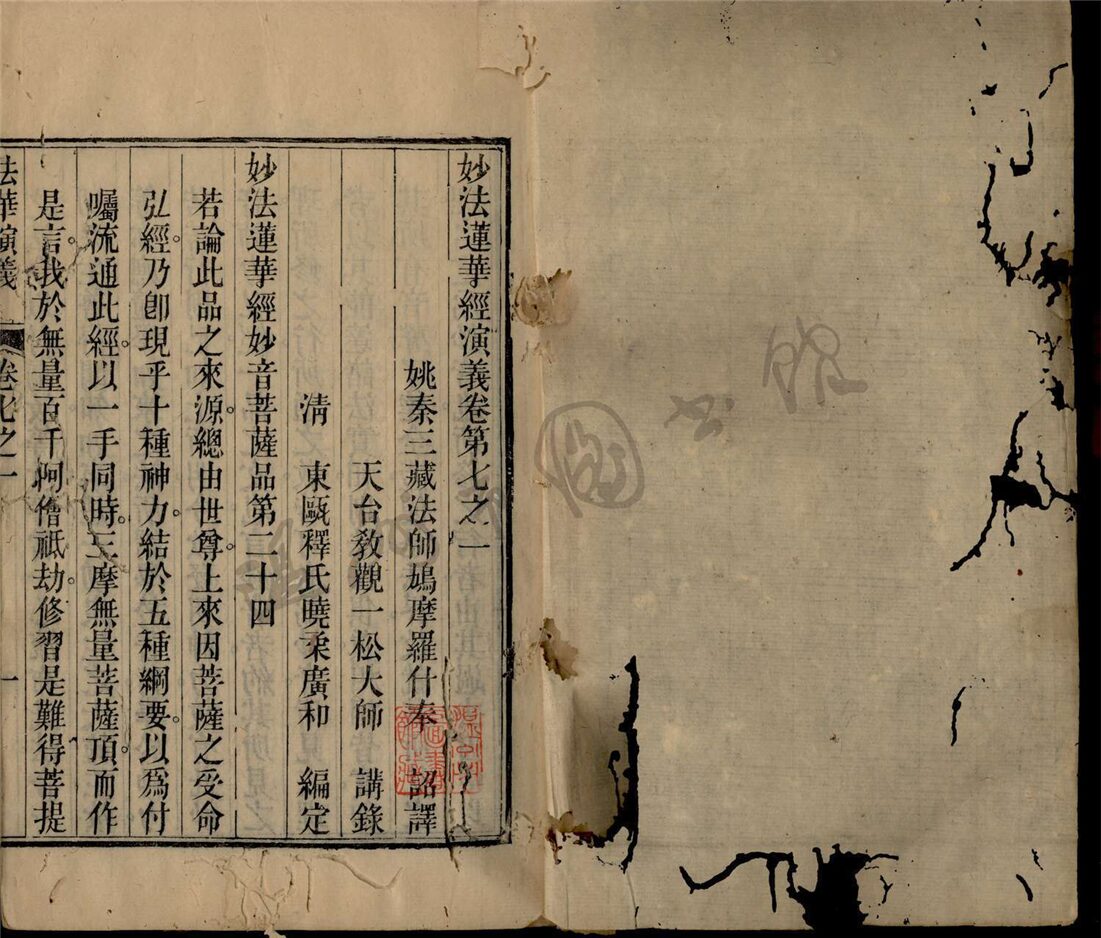 妙法蓮華經演義卷第七之一
姚秦三藏法師鳩摩羅什奉 詔譯
天台敎觀一松大師 講錄
淸 東甌釋氏曉柔廣和 編定
妙法蓮華經妙音菩薩品第二十四
若論此品之來源。總由世尊。上來因菩薩之受命
弘經。乃卽現乎十種神力。結於五種綱要。以爲付
囑流通此經。以一手同時。三摩無量菩薩頂。而作
是言。我於無量百千阿僧祇劫。修習是難得菩提
法華演義 卷七之一 一